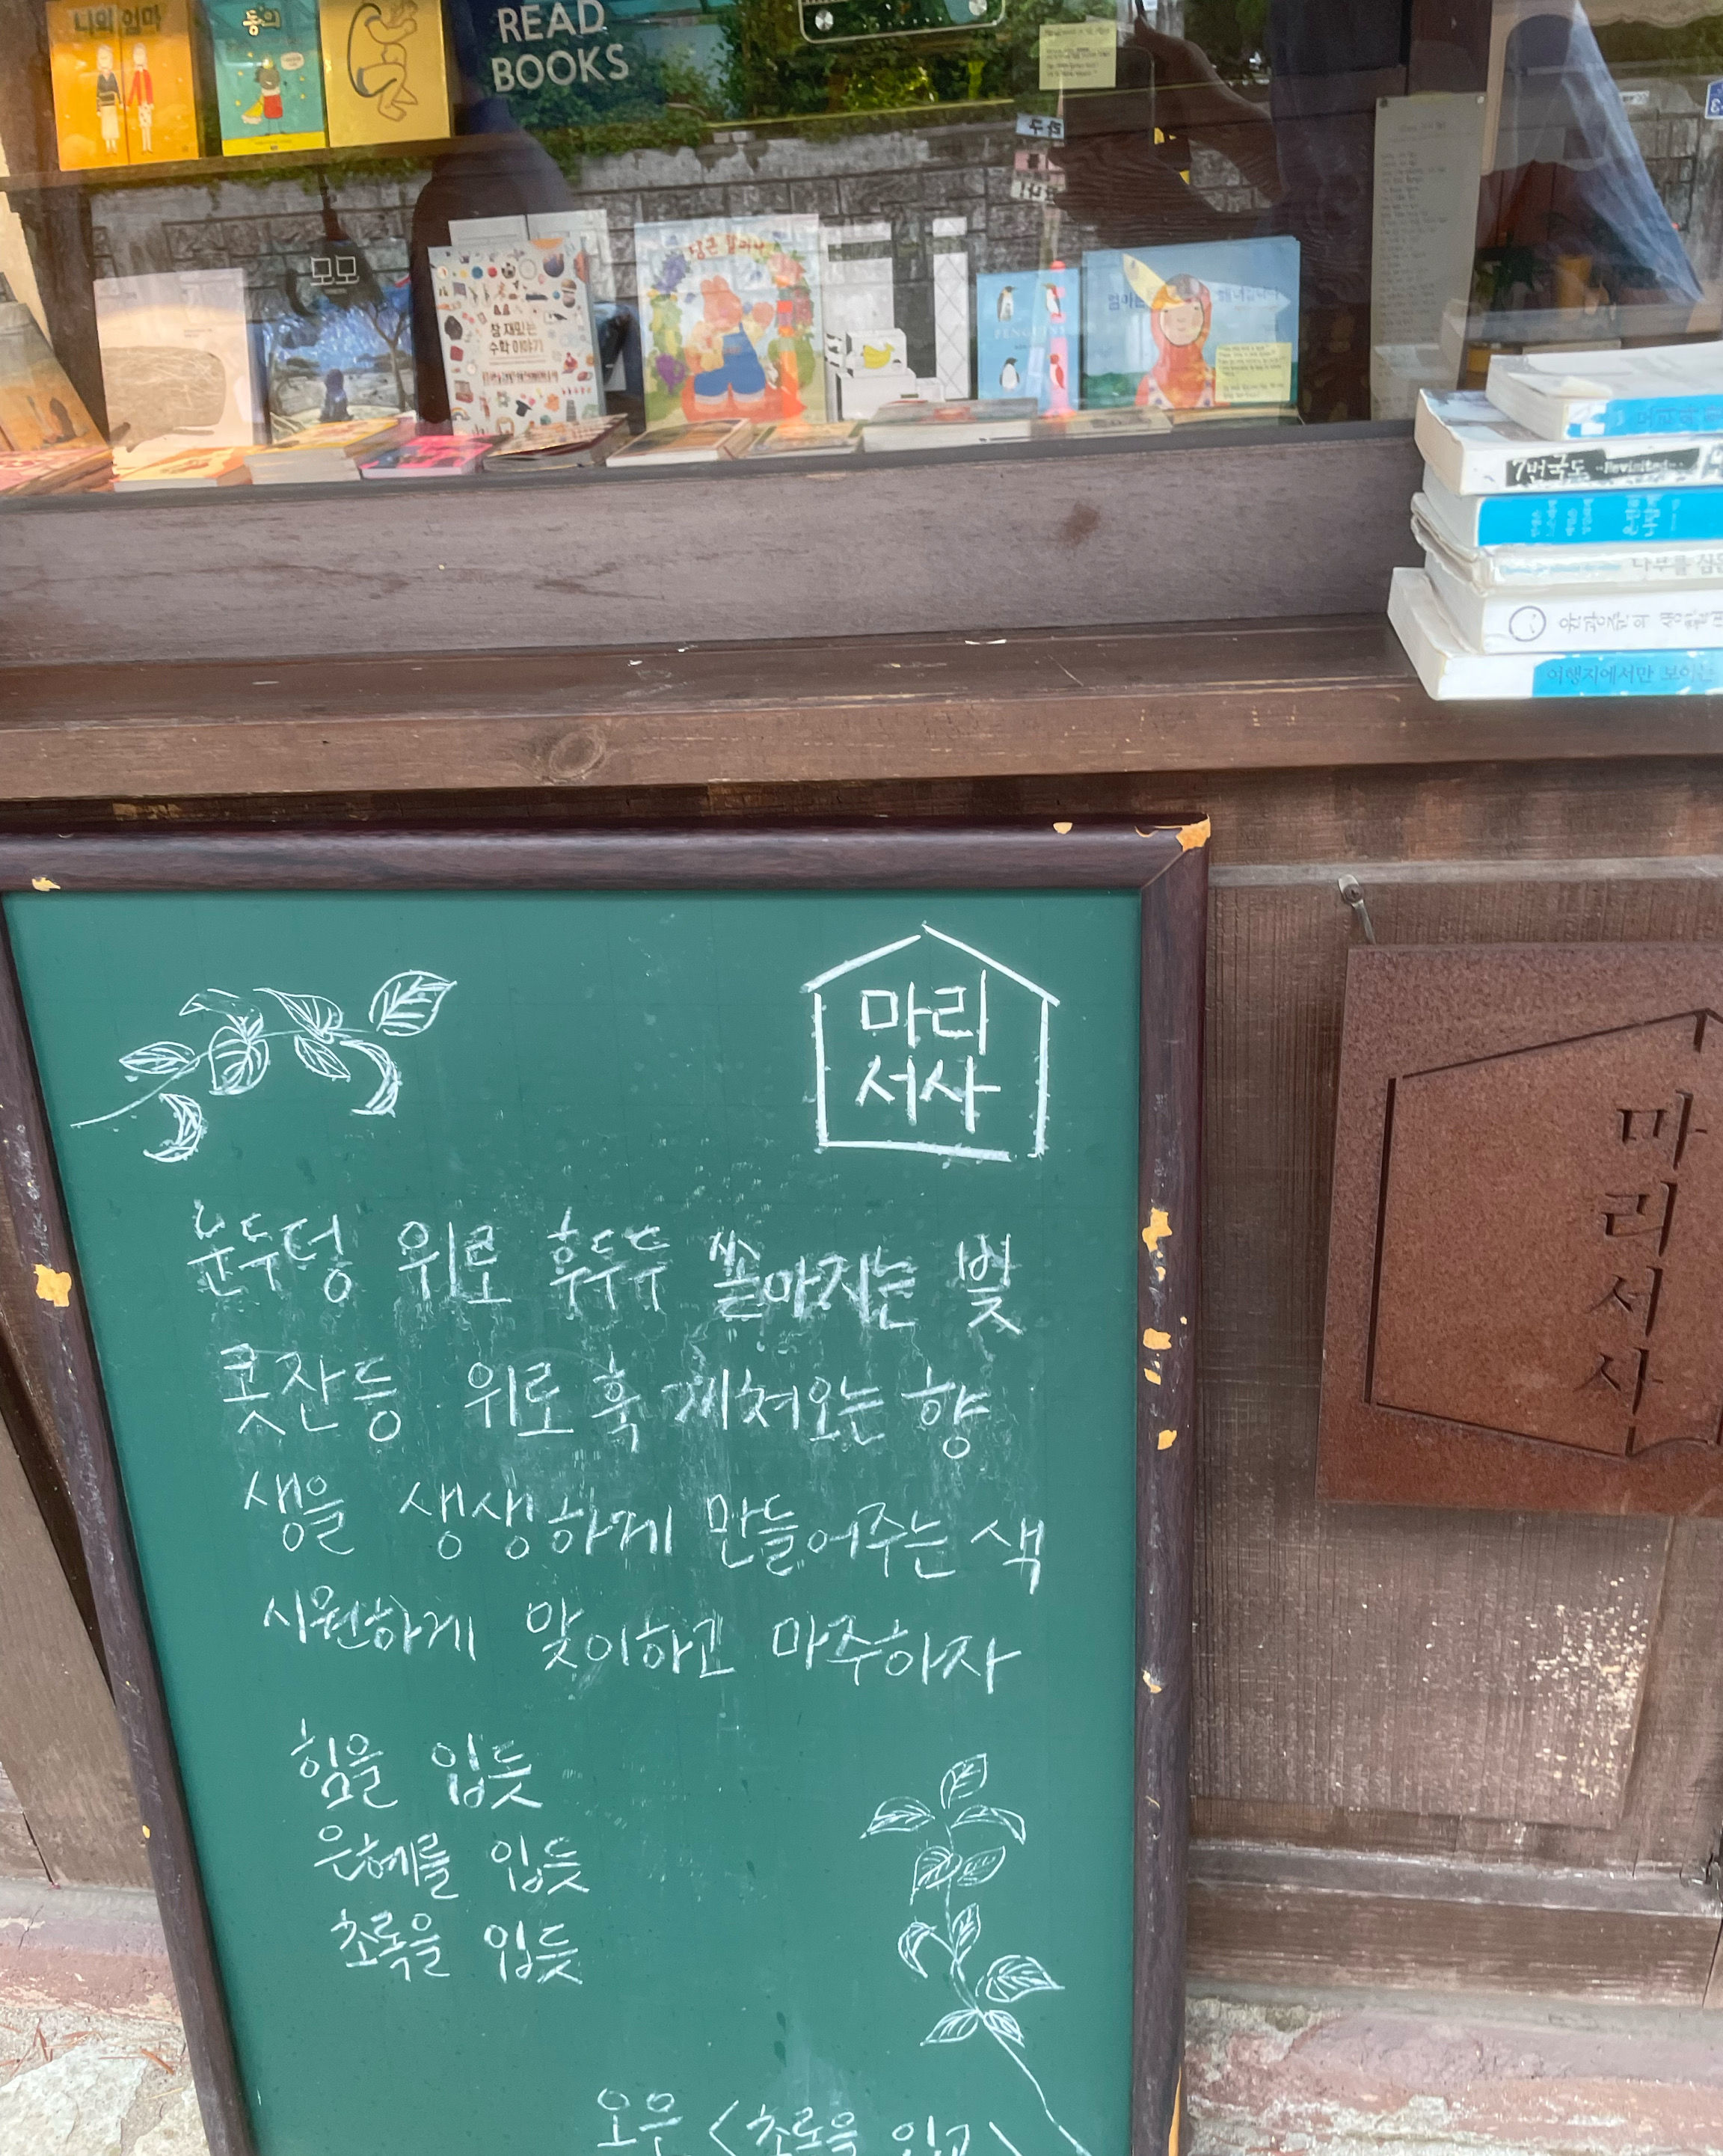 나의 엄마
동의
READ
BOOKS
모모
참 재밌는
수학 이야기
당근 할머니
PENGUINS
7번국도 Revisited
나무를 심은
여행지에서만 보이는
마리
서사
눈두덩 위로 후두두 쏟아지는 빛
콧잔등 위로 훅 끼쳐오는 향
생을 생생하게 만들어주는 색
시원하게 맞이하고 마주하자
힘을 입듯
은혜를 입듯
초록을 입듯
오은 〈초록을 입고〉
마리서사